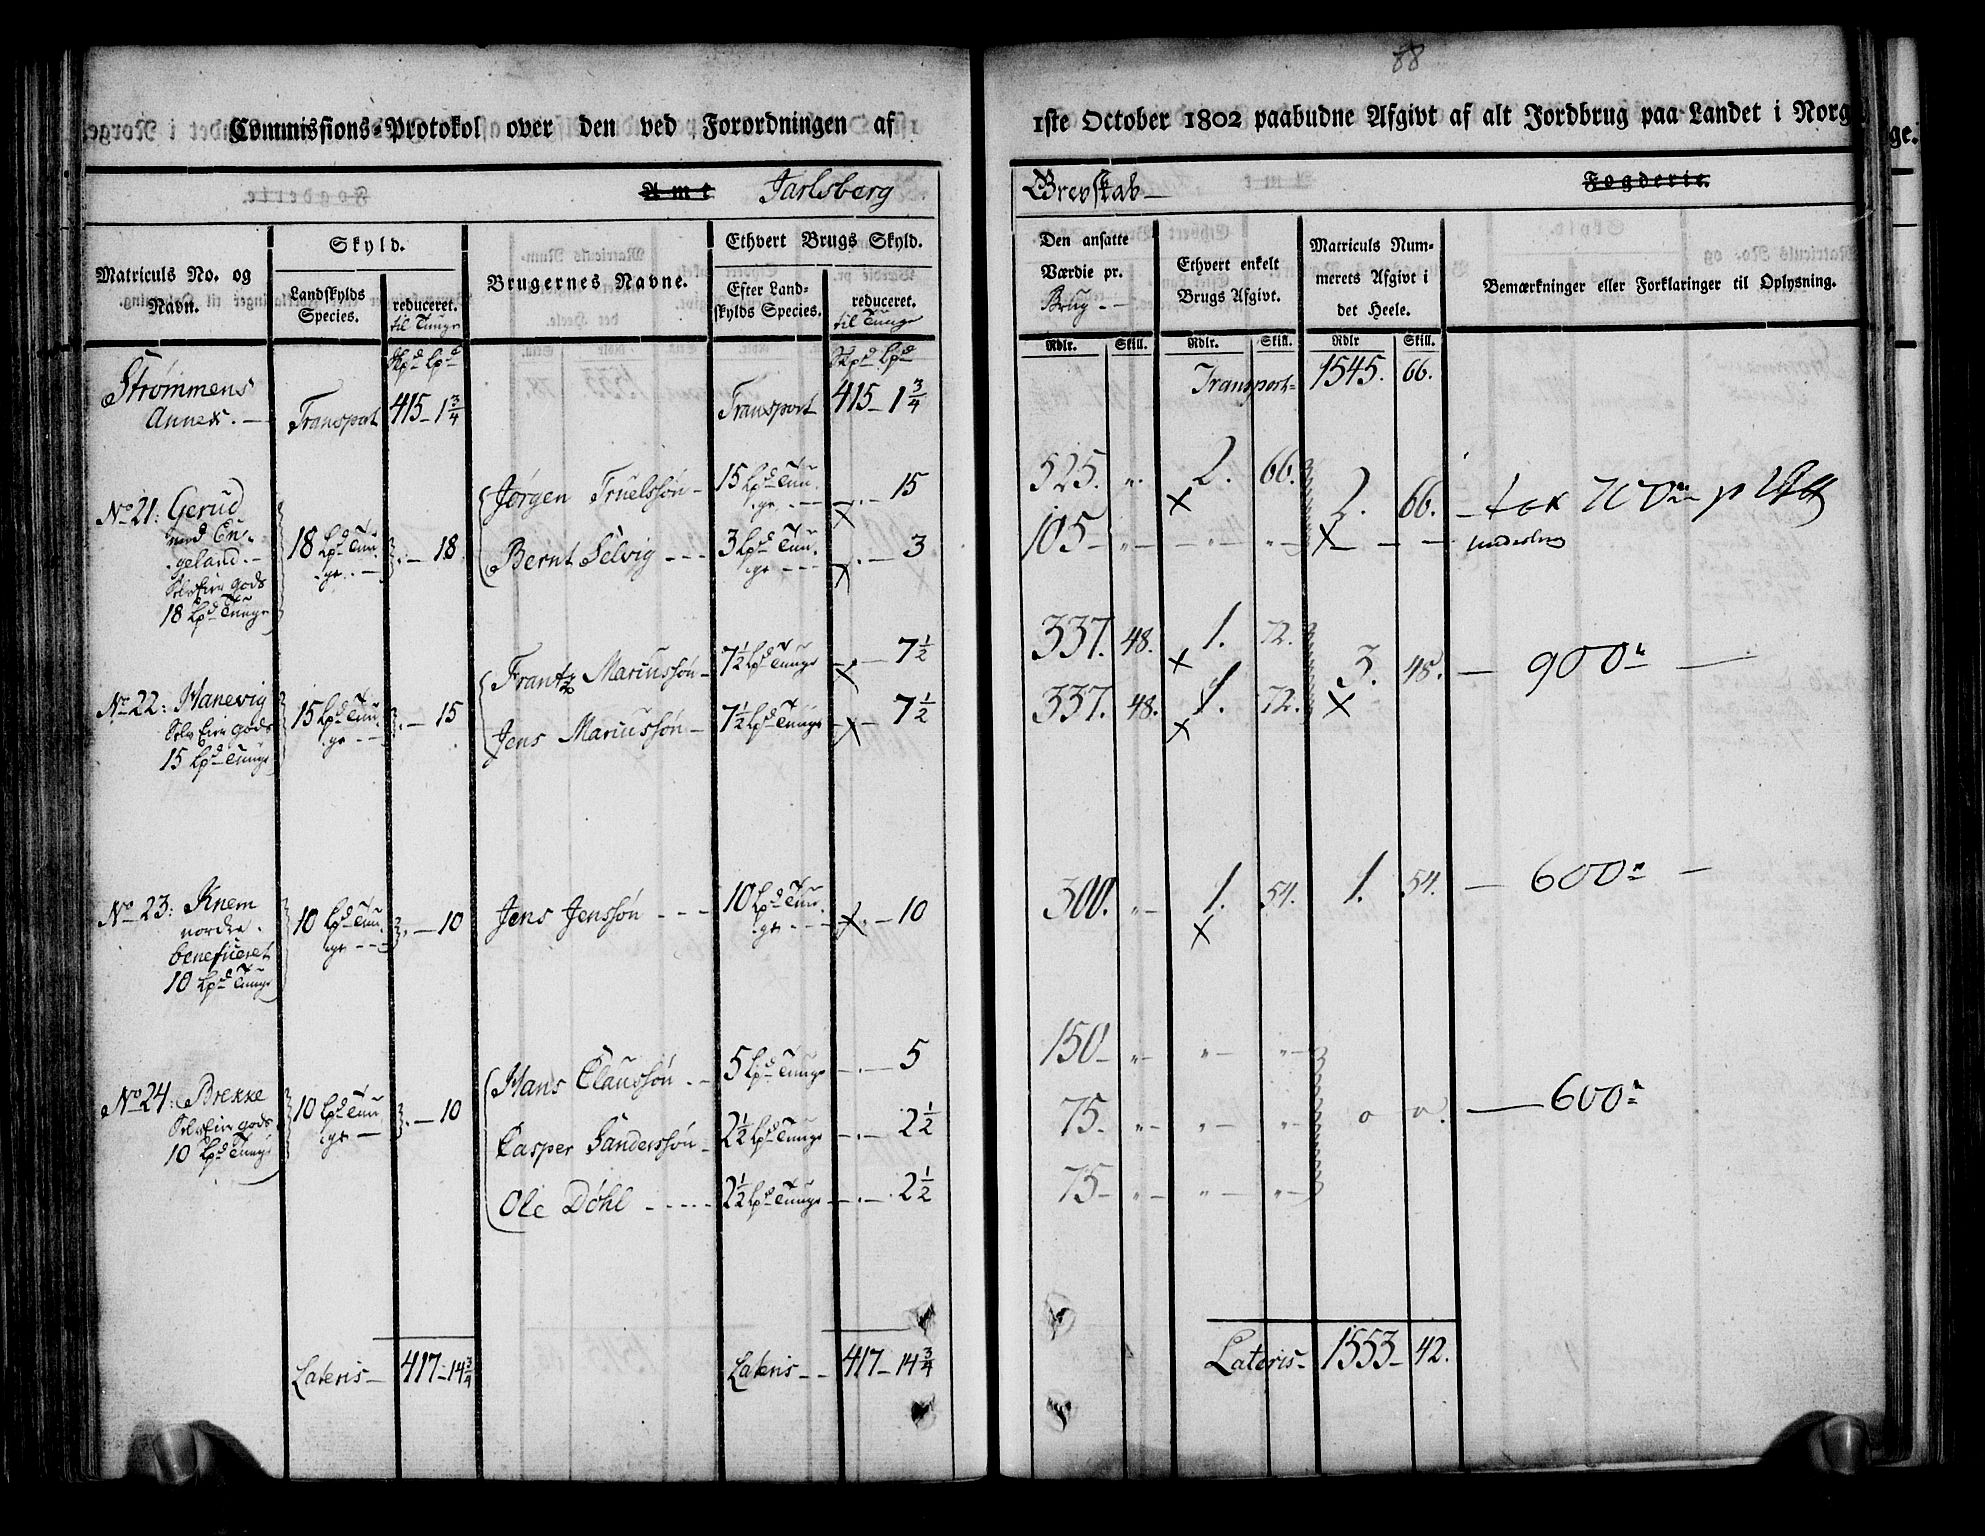 88
Commissions-Protokol over den ved Forordningen af 1ste October 1802 paabudne Afgivt af alt Jordbrug paa Landet i Norge
Amt Jarlsberg Grevskab Fogderie.
Matriculs No. og Navn.
Skyld.
Landskylds Species.
reduceret. til Tunge
Brugernes Navne.
Ethvert Brugs Skyld.
Efter Landskylds Species.
reduceret. til Tunge
Den ansatte Værdie pr. Brug
Ethvert enkelt Brugs Afgivt.
Matriculs Nummerets Afgivt i det Heele.
Bemærkninger eller Forklaringer til Oplysning.
Skpd Lpd Skpd Lpd Rdlr. Skill. Rdlr. Skill. Rdlr Skill.
Strømmens Annex. Transport 415 1 3/4 Transport 415 1 3/4 Transport 1545. 66.
No 21: Gerud
med En-
geland.
Selv Eier gods
18 Lpd Tunge
18 Lpd Tunge . 18
Jørgen Truelssøn 15 Lpd Tunge 15 525. " 2. 66. 2. 66.
Bernt Selvig 3 Lpd Tunge 3 105 "
No 22: Hanevig
Selv Eier gods
15 Lpd Tunge
15 Lpd Tunge . 15
Frantz Mariussøn 7 1/2 Lpd Tunge 7 1/2 337. 48. 1. 72. 3. 48. 900
Jens Mariussøn 7 1/2 Lpd Tunge 7 1/2 337. 48. 1. 72.
No 23: Knem
nordre.
beneficeret
10 Lpd Tunge
10 Lpd Tunge . 10
Jens Jenssøn 10 Lpd Tunge 10 300. " 1. 54. 1. 54. 600
No 24: Brekke
Selv Eier gods
10 Lpd Tunge
10 Lpd Tunge . 10
Hans Claussøn 5 Lpd Tunge 5 150 " " "
Casper Sanderssøn 2 1/2 Lpd Tunge 2 1/2 75. " " " o o 600
Ole Døhl 2 1/2 Lpd Tunge 2 1/2 75 " " "
Lateris 417 14 3/4 Lateris 417 14 3/4 Lateris 1553 42.